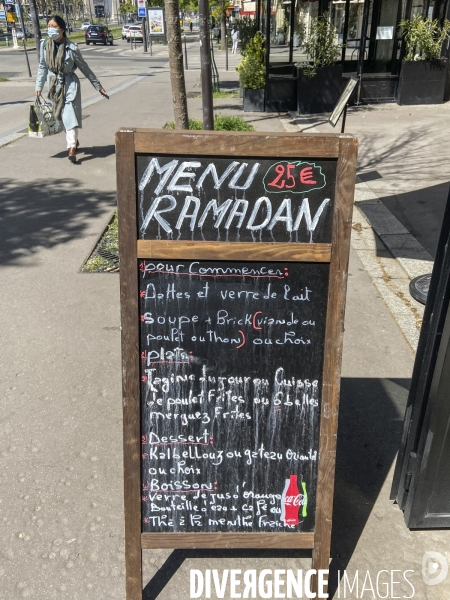 MENU 25€
RAMADAN
pour commencer:
Dattes et verre de lait
Soupe + Brick (viande ou
poulet ou thon) ou choix
plats:
Tagine du jour ou Cuisse
de poulet frites ou 3 belles
merguez frites
Dessert:
Kalbellouz ou gateau Oriental
ou choix
Boisson:
Verre de jus d'orange
Bouteille eau + café ou
Thé à la menthe fraiche
Coca-Cola
DIVERGENCE IMAGES